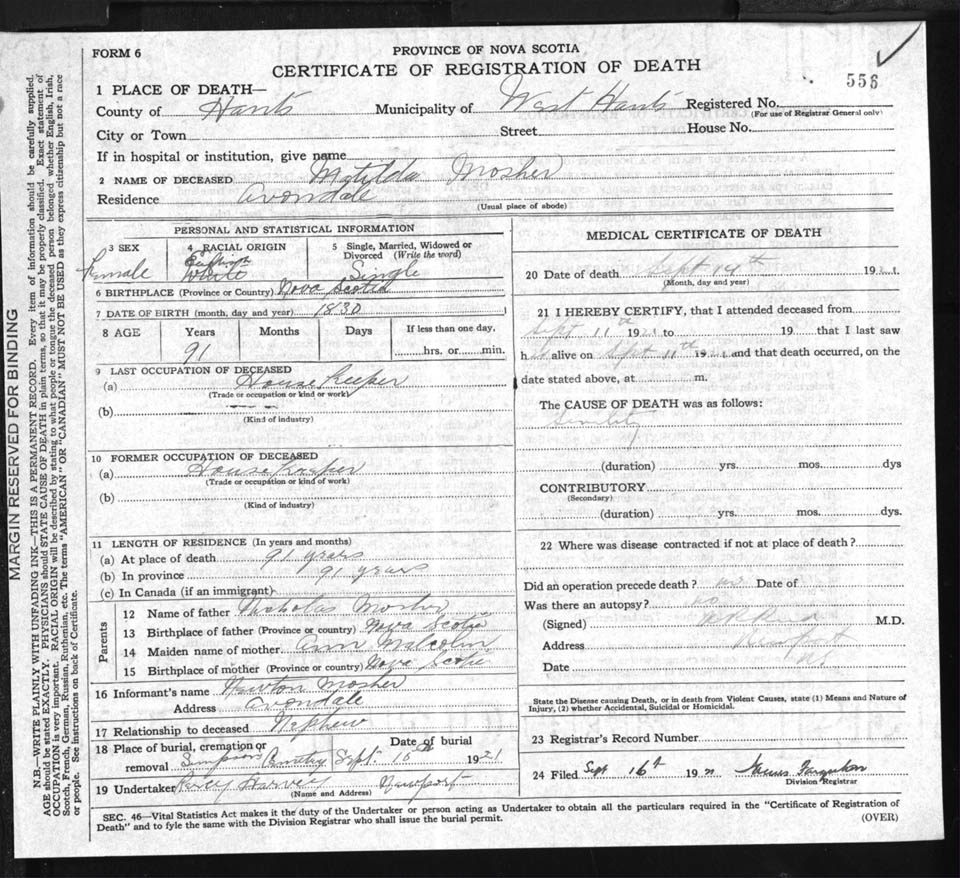 FORM 6
PROVINCE OF NOVA SCOTIA
CERTIFICATE OF REGISTRATION OF DEATH
556
1 PLACE OF DEATH—
County of Hants Municipality of West Hants Registered No.
(For use of Registrar General only)
City or Town Street House No.
If in hospital or institution, give name
2 NAME OF DECEASED Matilda Mosher
Residence Avondale
(Usual place of abode)
PERSONAL AND STATISTICAL INFORMATION
3 SEX
Female
4 RACIAL ORIGIN
English
White
5 Single, Married, Widowed or Divorced (Write the word)
Single
6 BIRTHPLACE (Province or Country) Nova Scotia
7 DATE OF BIRTH (month, day and year) 1830
8 AGE Years Months Days If less than one day,
91 hrs. or min.
9 LAST OCCUPATION OF DECEASED
(a) House Keeper
(Trade or occupation or kind or work)
(b)
(Kind of industry)
10 FORMER OCCUPATION OF DECEASED
(a) House Keeper
(Trade or occupation or kind of work)
(b)
(Kind of industry)
11 LENGTH OF RESIDENCE (In years and months)
(a) At place of death 91 years
(b) In province 91 years
(c) In Canada (if an immigrant)
Parents
12 Name of father Nicholas Mosher
13 Birthplace of father (Province or country) Nova Scotia
14 Maiden name of mother Ann Malcolm
15 Birthplace of mother (Province or country) Nova Scotia
16 Informant's name Newton Mosher
Address Avondale
17 Relationship to deceased Nephew
18 Place of burial, cremation or removal Date of burial
Sept. 1921
19 Undertaker Percy Harvey Newport
(Name and Address)
MEDICAL CERTIFICATE OF DEATH
20 Date of death Sept 14th 1921
(Month, day and year)
21 I HEREBY CERTIFY, that I attended deceased from
Sept 11th 1921 to 19 that I last saw
h alive on Sept 11th 1921 and that death occurred, on the
date stated above, at m.
The CAUSE OF DEATH was as follows:
Senility
(duration) yrs. mos. dys
CONTRIBUTORY
(Secondary)
(duration) yrs. mos. dys.
22 Where was disease contracted if not at place of death?
Did an operation precede death? no Date of
Was there an autopsy? no
(Signed) M.D.
Address Newport
Date
State the Disease causing Death, or in death from Violent Causes, state (1) Means and Nature of
Injury, (2) whether Accidental, Suicidal or Homicidal.
23 Registrar's Record Number
24 Filed Sept 16th 1921
Division Registrar
SEC. 46—Vital Statistics Act makes it the duty of the Undertaker or person acting as Undertaker to obtain all the particulars required in the "Certificate of Registration of
Death" and to fyle the same with the Division Registrar who shall issue the burial permit.
(OVER)
MARGIN RESERVED FOR BINDING
N.B.—WRITE PLAINLY WITH UNFADING INK—THIS IS A PERMANENT RECORD. Every item of information should be carefully supplied.
AGE should be stated EXACTLY. PHYSICIANS should STATE CAUSE OF DEATH in plain terms, so that it may be properly classified. Exact statement of
OCCUPATION is very important. RACIAL ORIGIN will be described by stating to what people or tongue the deceased person belonged whether English, Irish,
Scotch, French, German, Russian, Ruthenian, etc. The terms "AMERICAN" OR "CANADIAN" MUST NOT BE USED as they express citizenship but not a race
or people. See instructions on back of Certificate.